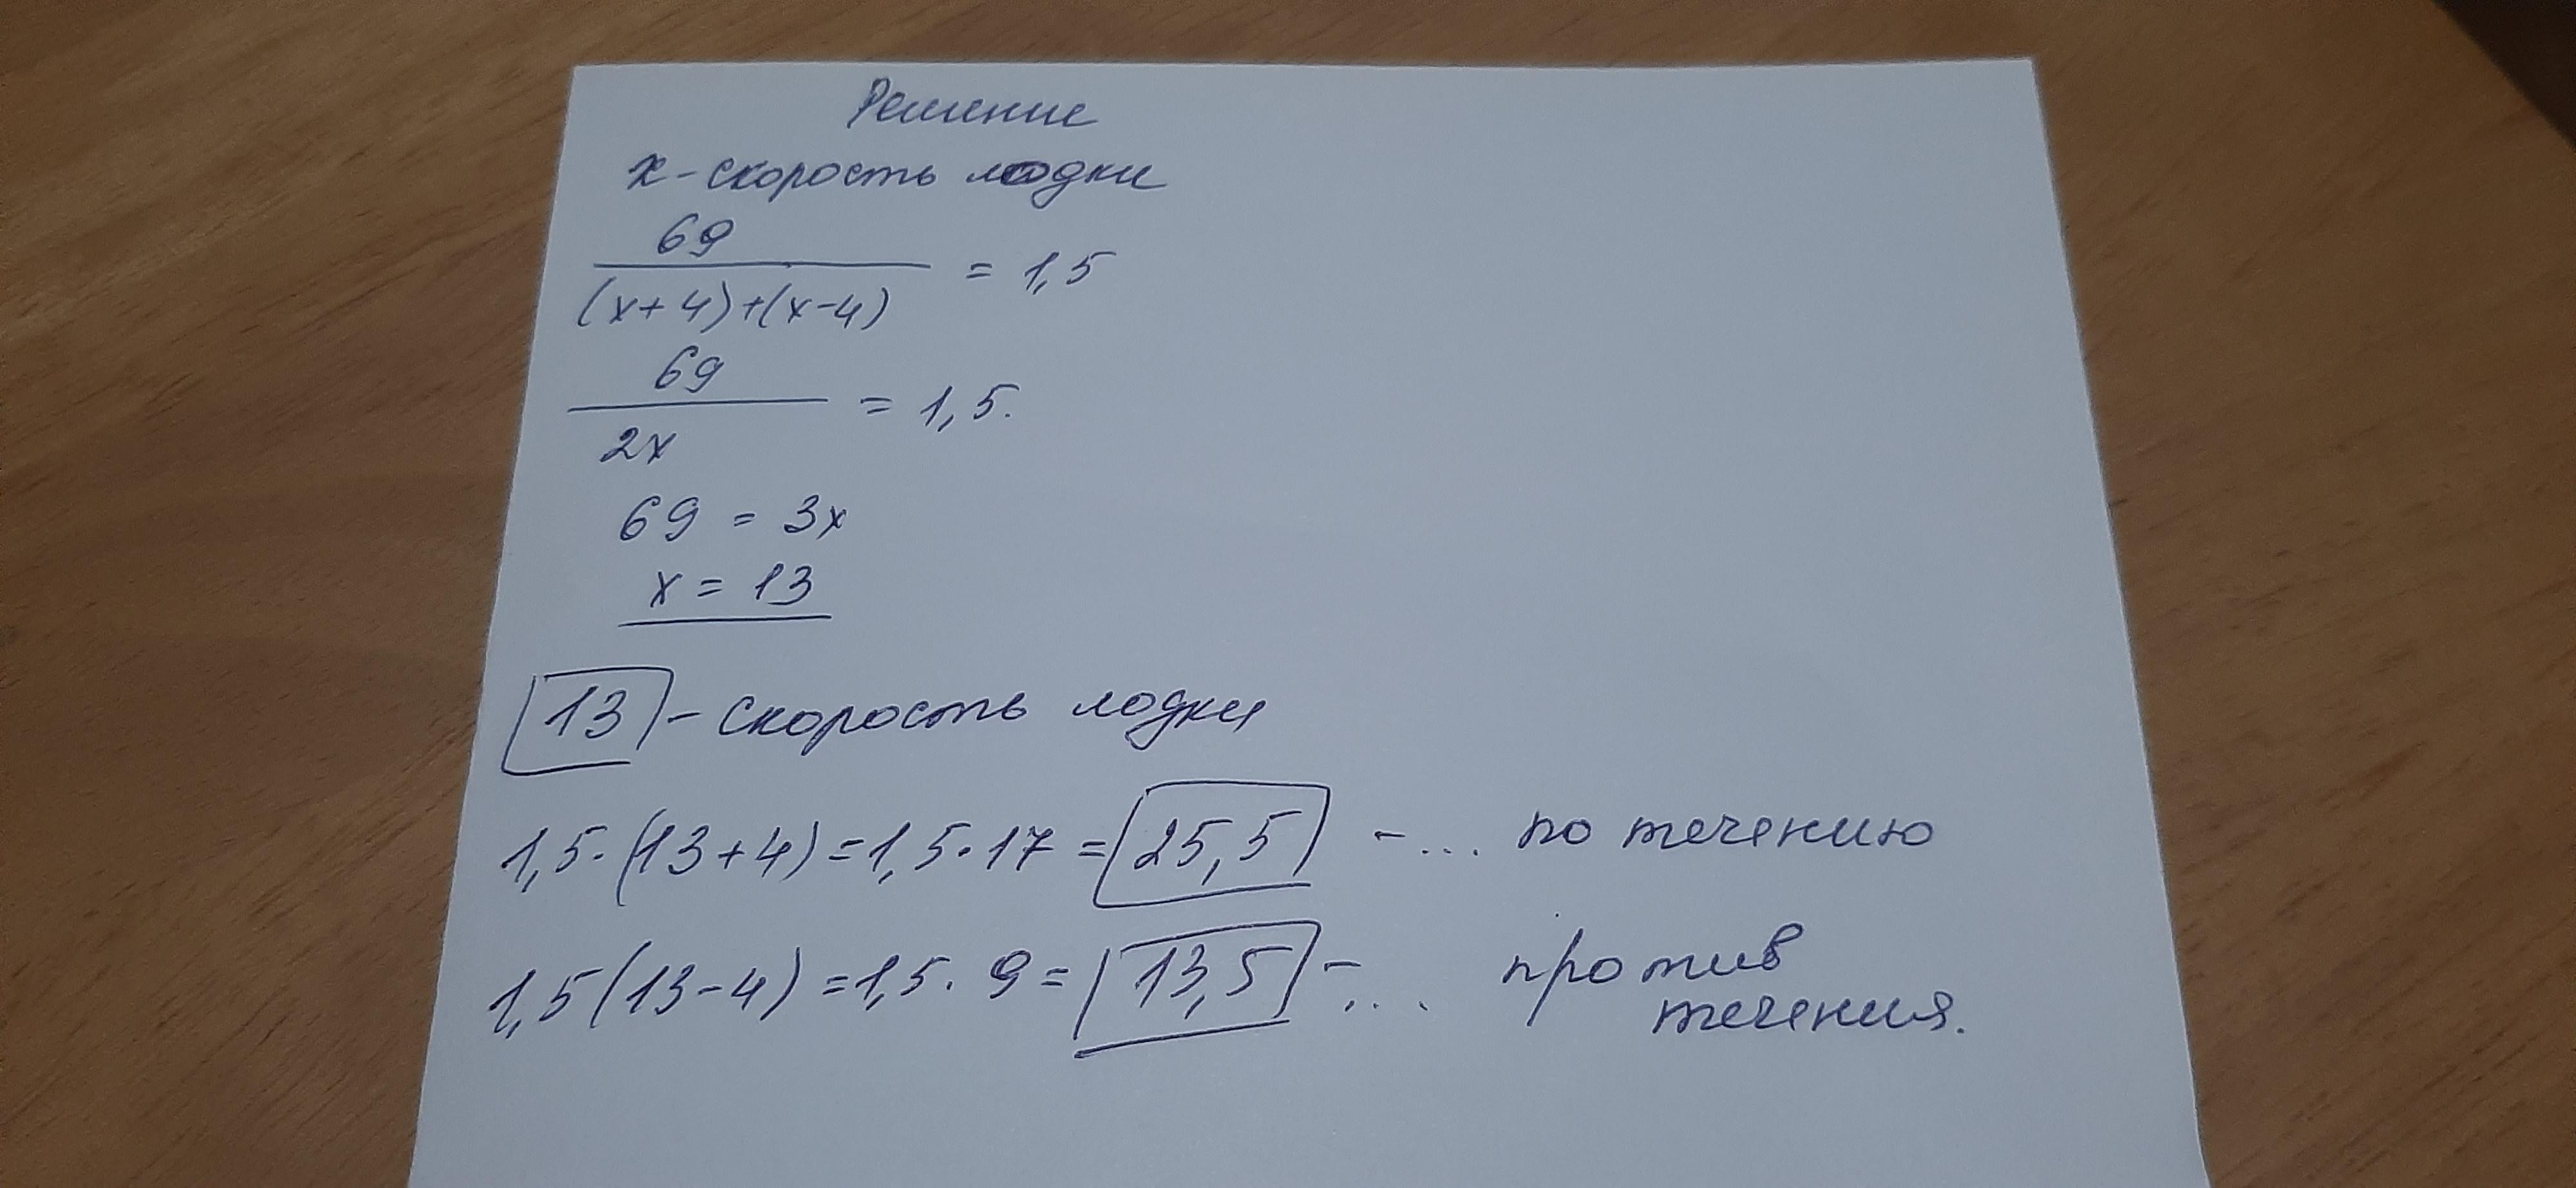 Решение
x - скорость лодки
69
———————— = 1,5
(x+4)+(x-4)
69
———— = 1,5.
2x
69 = 3x
x = 13
13 - скорость лодки
1,5·(13+4)=1,5·17=25,5 - ... по течению
1,5(13-4)=1,5·9=13,5 - ... против
течения.